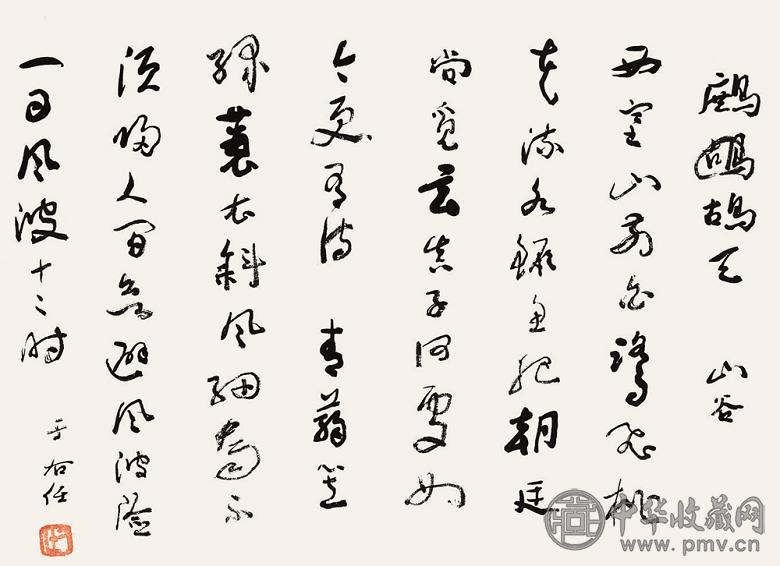 鷓鴣天　山谷
西塞山前白鷺飛桃
花流水鱖魚肥朝廷
尚覓玄真子何處如
今更有詩　青蒻笠
綠蓑衣斜風細雨不
須歸人間欲避風波險
一日風波十二時
于右任
中华收藏网
www.pmv.cn